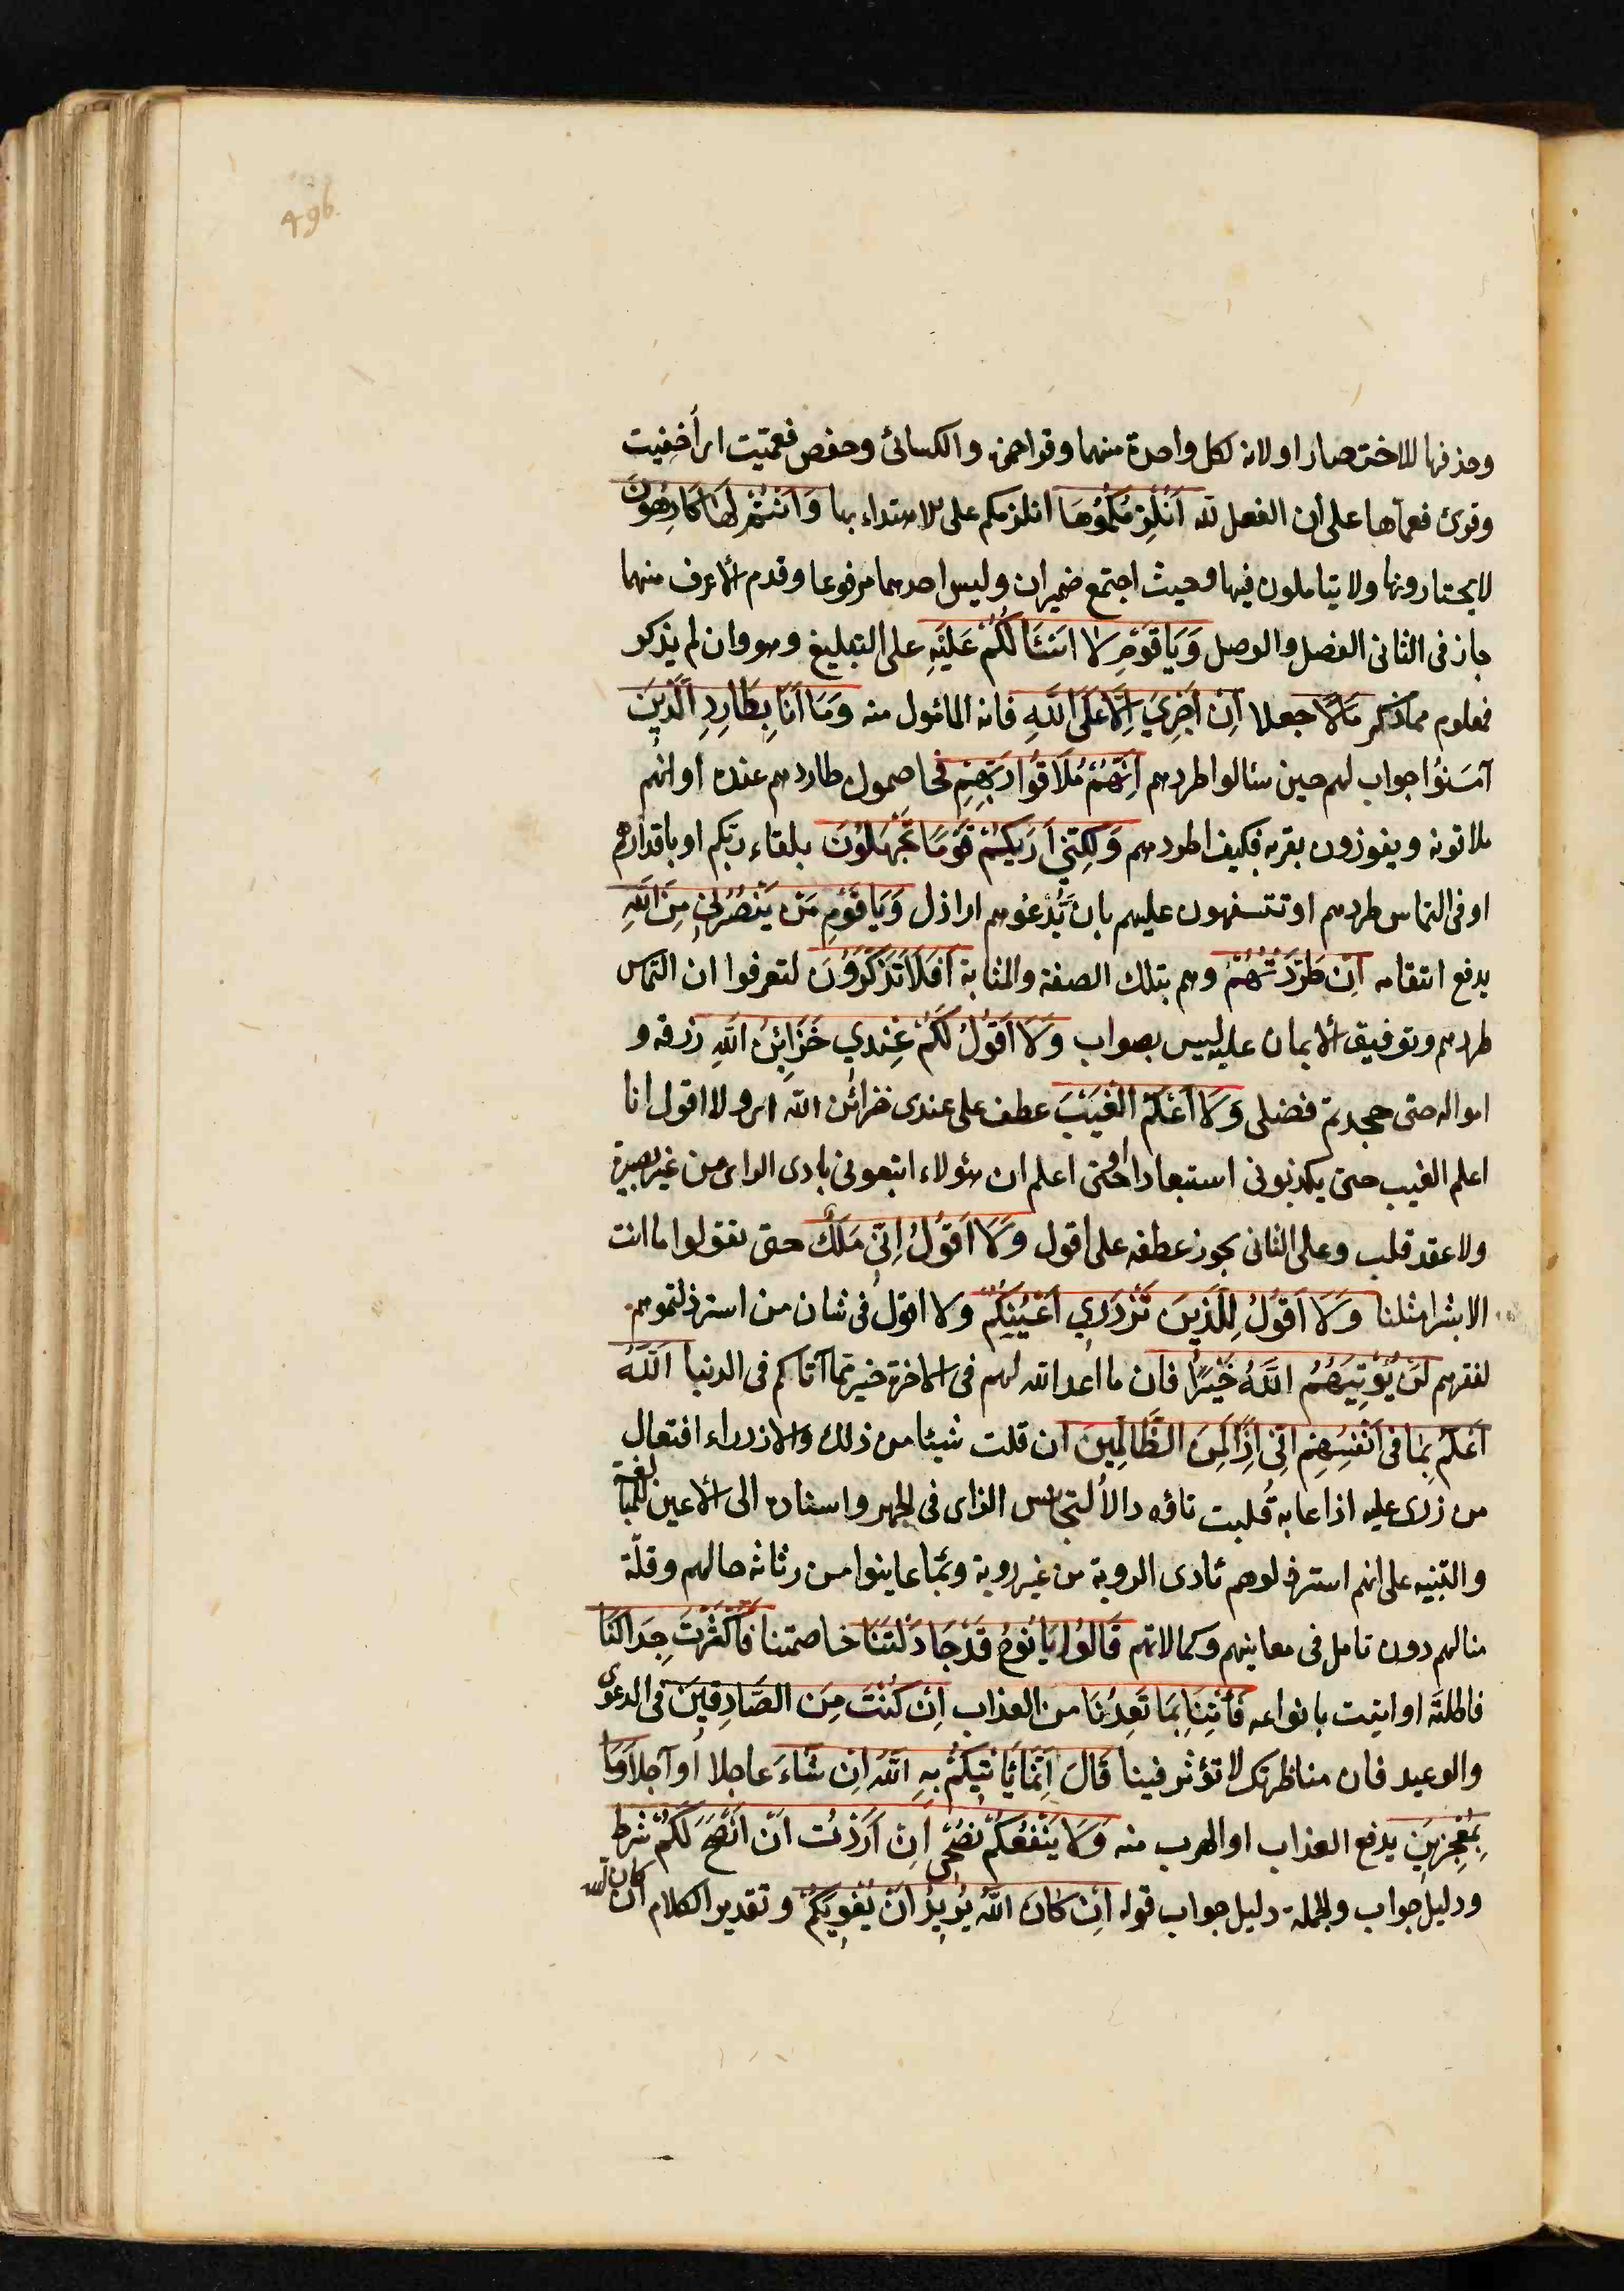 496.
وحذفها للاختصار او لانه لكل واحدة منهما وقرأ حمزه والكسائى وحفص فعمّيت اى أخفيت
وقرئ فعماها على أن الفعل لله اَنُلْزِمُكُمُوهَا انلزمكم على الاهتداء بها وَاَنْتُمْ لَهَا كَارِهُونَ
لا يختارونها ولا يتاملون فيها وحيث اجتمع ضميران وليس احدهما مرفوعا وقدم الأعرف منهما
جاز فى الثانى الفصل والوصل وَيَا قَوْمِ لَا اَسْئَالُكُمْ عَلَيْهِ على التبليغ وهو وان لم يذكر
فمعلوم مما ذكر مَالًا جعلا اِنْ اَجْرِيَ اِلَّا عَلَى اللَّهِ فانه المامول منه وَمَا اَنَا بِطَارِدِ الَّذِينَ
آمَنُوا جواب لهم حين سئالوا طردهم اِنَّهُمْ مُلَاقُوا رَبِّهِمْ فيخاصمون طاردهم عنده او انهم
ملاقونه ويفوزون بقربه فكيف اطردهم وَلَكِنِّي اَرَيكُمْ قَوْمًا تَجْهَلُونَ بلقاء ربكم او باقدارهم
او فى التماس طردهم او تتسفهون عليهم بان تدعوهم اراذل وَيَا قَوْمِ مَنْ يَنْصُرُنِي مِنَ اللَّهِ
بدفع انتقامه اِنْ طَرَدْتُهُمْ وهم بتلك الصفة والمثابة اَفَلَا تَذَكَّرُونَ لتعرفوا ان التماس
طردهم وتوفيق الأيمان عليه ليس بصواب وَلَا اَقُولُ لَكُمْ عِنْدِي خَزَائِنُ اللَّهِ رزقه و
امواله حتى جحدتم فضلى وَلَا اَعْلَمُ الْغَيْبَ عطف على عندى خزائن الله اى ولا اقول انا
اعلم الغيب حتى يكذبونى استبعادا او حتى اعلم ان هؤلاء ابتعونى بادى الراى من غير بصيرة
ولا عقد قلب وعلى الثانى يجوز عطفه على اقول وَلَا اَقُولُ اِنِّي مَلَكٌ حتى تقولوا ما انت
الا بشرا مثلنا وَلَا اَقُولُ لِلَّذِينَ تَزْدَرِي اَعْيُنُكُمْ ولا اقول فى شان من استرذلتموهم
لفقرهم لَنْ يُؤْتِيَهُمُ اللَّهُ خَيْرًا فان ما اعد الله لهم فى الاخرة خير مما آتاكم فى الدنيا اَللَّهُ
اَعْلَمُ بِمَا فِى اَنْفُسِهِمْ اِنِّى اِذًا لَمِنَ الظَّالِمِينَ ان قلت شيئا من ذلك والازدراء افتعال
من زرى عليه اذا عابه قُلبت تاؤه دالا لتجانس الزاى فى الجهر واسناده الى الأعين للمبالغة
والتنبيه على انهم استرذلوهم بادى الروية من غير روية وبما عاينوا من رثاثة حالهم وقلّة
منالهم دون تامل فى معاينهم وكمالاتهم قَالُوا يَا نُوحُ قَدْ جَادَلْتَنَا خاصمتنا فَاَكْثَرْتَ جِدَالَنَا
فاطلته او اتيت بانواعه فَأْتِنَا بِمَا تَعِدُنَا من العذاب اِنْ كُنْتَ مِنَ الصَّادِقِينَ فى الدعوى
والوعيد فان مناظرتك لا تؤثر فينا قَالَ اِنَّمَا يَاْتِيكُمْ بِهِ اللَّهُ اِنْ شَاءَ عاجلا أو آجلا وَمَا
بِمُعْجِزِينَ بدفع العذاب او الهرب منه وَلَا يَنْفَعُكُمْ نُصْحِى اِنْ اَرَدْتُ اَنْ اَنْصَحَ لَكُمْ شرط
ودليل جواب والجملة دليل جواب قوله اِنْ كَانَ اللَّهُ يُرِيدُ اَنْ يُغْوِيَكُمْ وتقدير الكلام ان كان الله